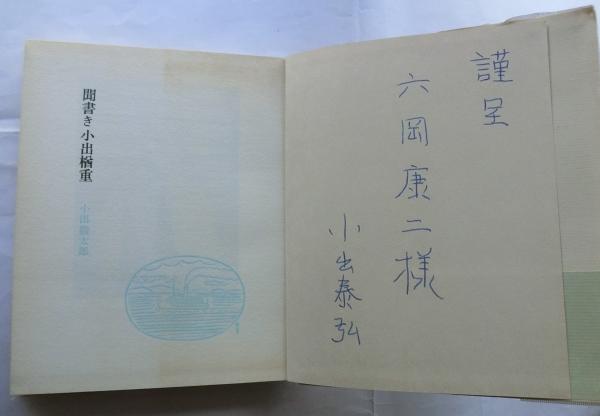 謹呈
六岡康二様
小出泰弘
聞書き 小出楢重
小出龍太郎